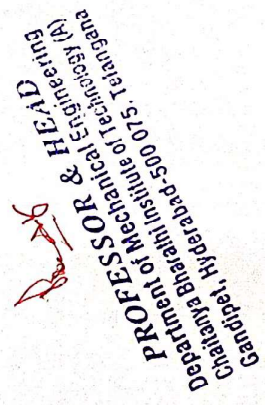 PROFESSOR & HEAD
Department of Mechanical Engineering
Chaitanya Bharathi Institute of Technology (A)
Gandipet, Hyderabad-500 075. Telangana